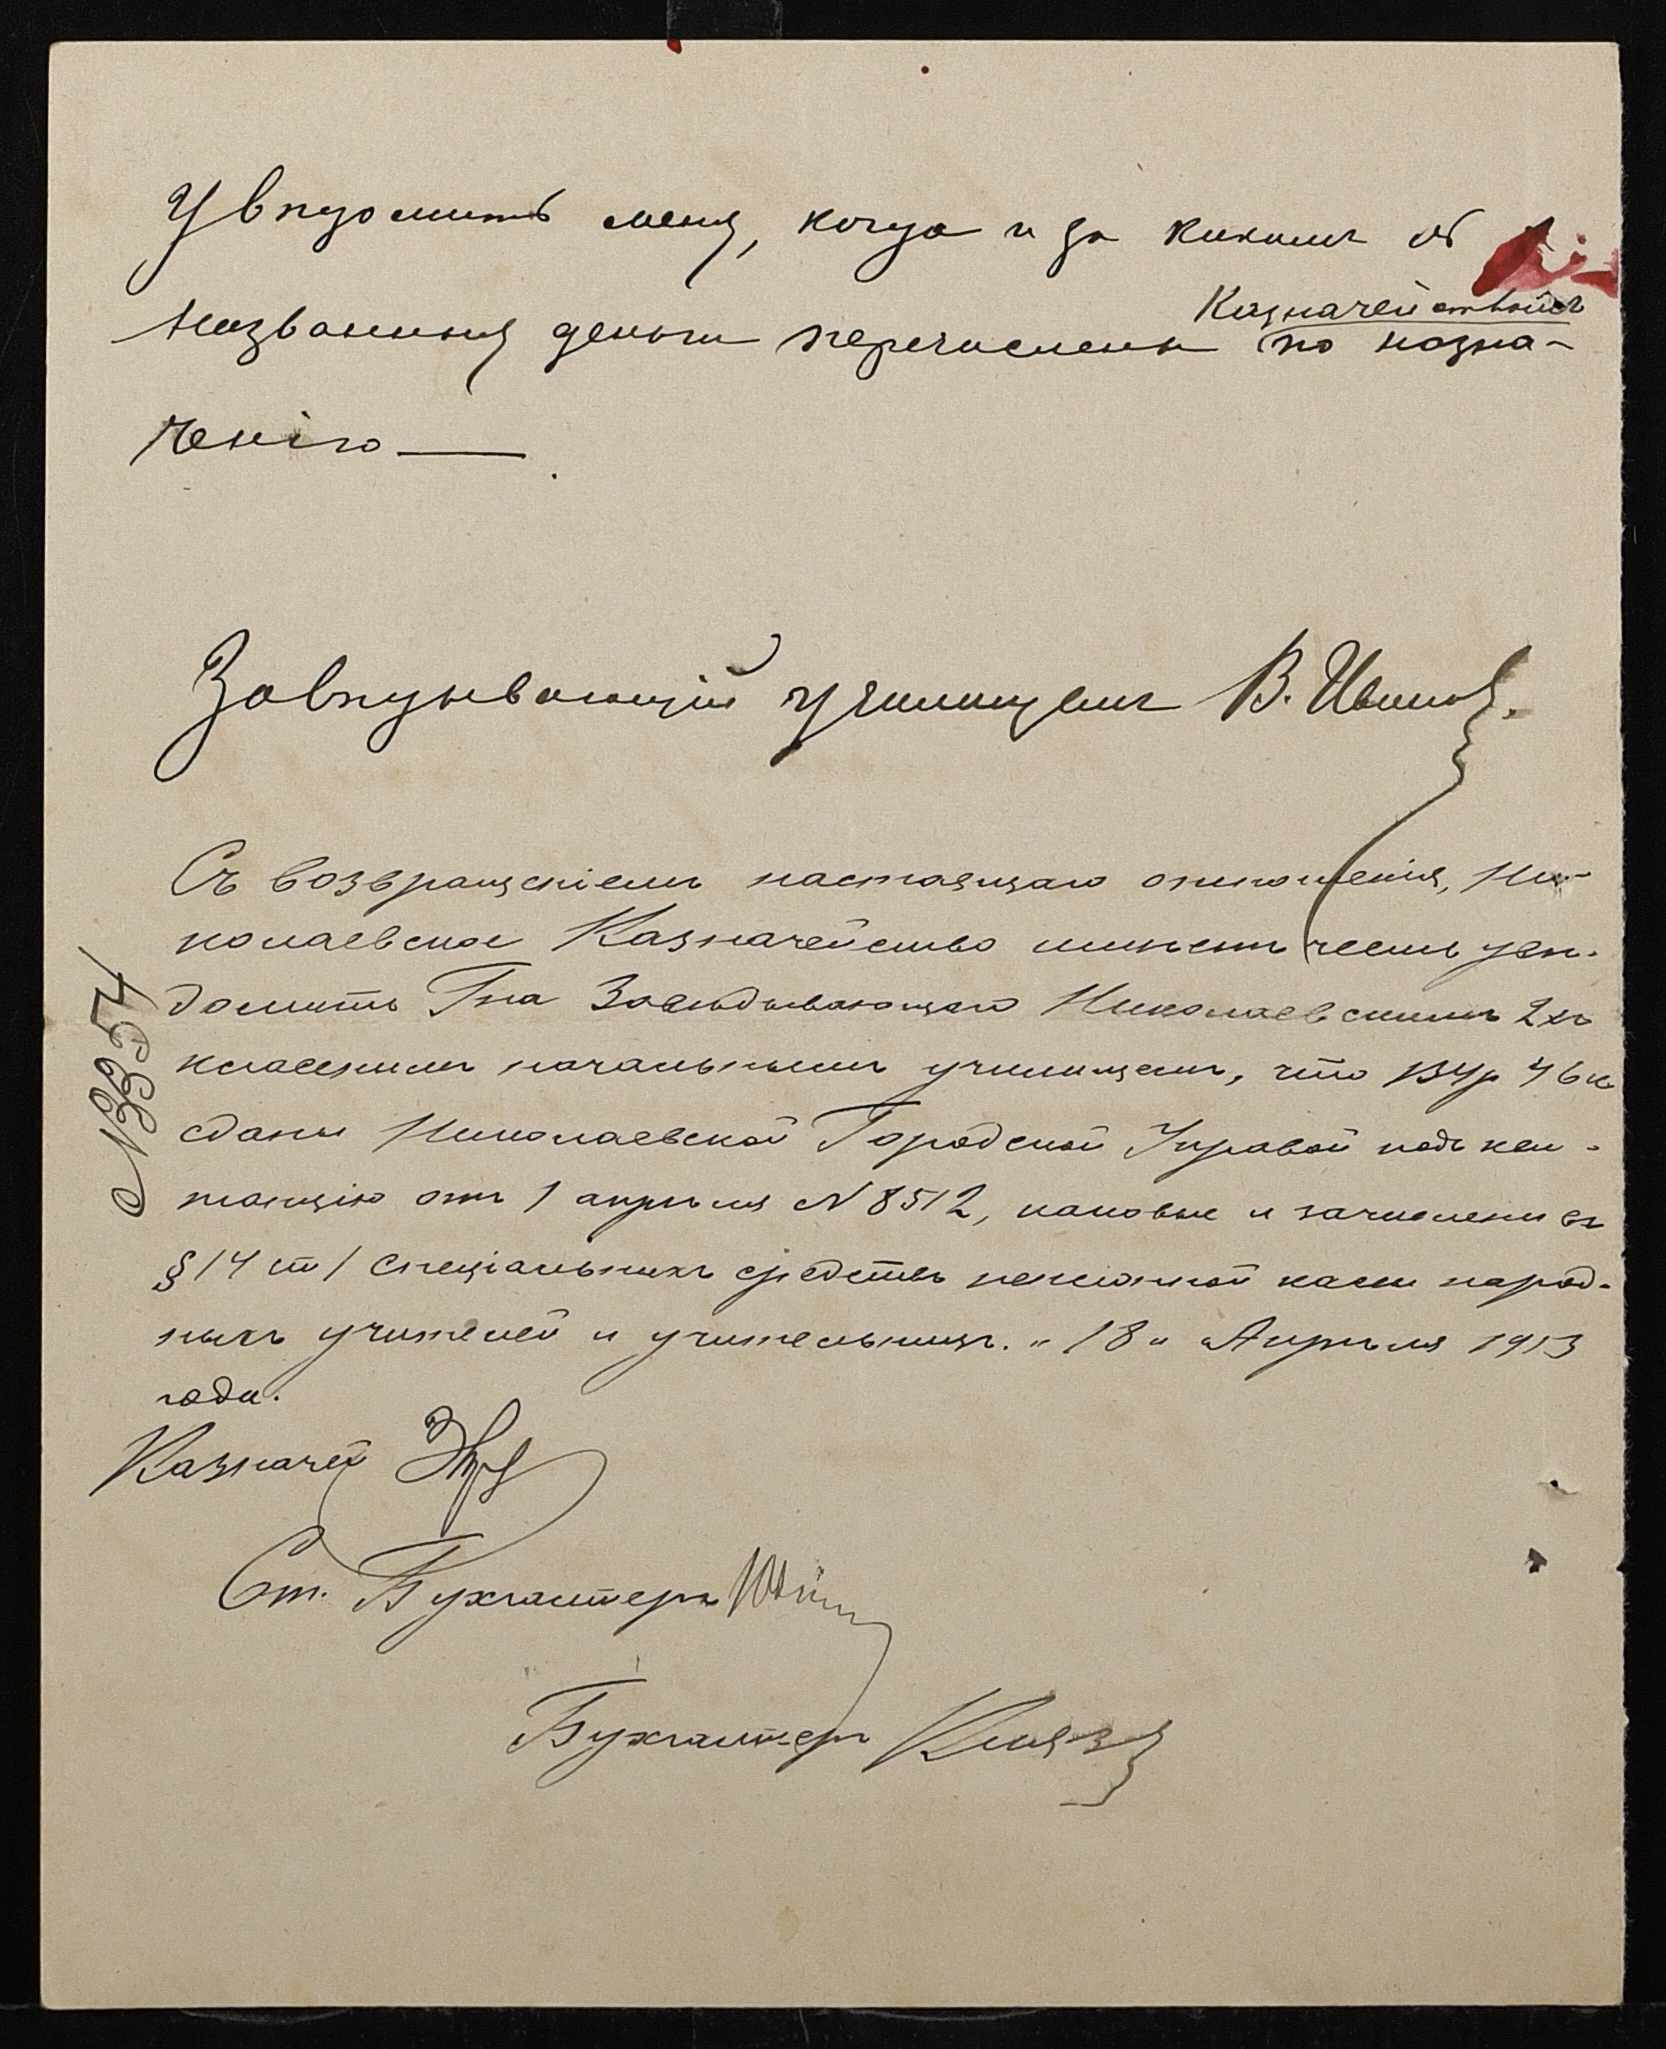 Увѣдомить меня, когда и за какимъ №
Казначействомъ
названныя деньги перечислены по назна-
ченію —
Завѣдывающій училищемъ В. Ивановъ.
Съ возвращеніемъ настоящаго отношенія, Ни-
колаевское Казначейство имѣетъ честь увѣ-
домить Гна Завѣдывающаго Николаевскимъ 2хъ
класснымъ начальнымъ училищемъ, что 134р 46к
сданы Николаевской Городской Управой подъ кви-
танцію отъ 1 апрѣля № 8512, каковые и зачислены въ
§ 14 ст 1 спеціальныхъ средствъ пенсіонной кассы народ-
ныхъ учителей и учительницъ. "18" Апрѣля 1913
года.
№ 3354
Казначей
Ст. Бухгалтеръ
Бухгалтеръ